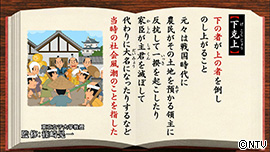 【下克上】
下の者が上の者を倒し
のし上がること
元々は戦国時代に
農民がその土地を預かる領主に
反抗して一揆を起こしたり
家臣が主君を滅ぼして
代わりに大名になったりするなど
当時の社会風潮のことを指した
©NTV